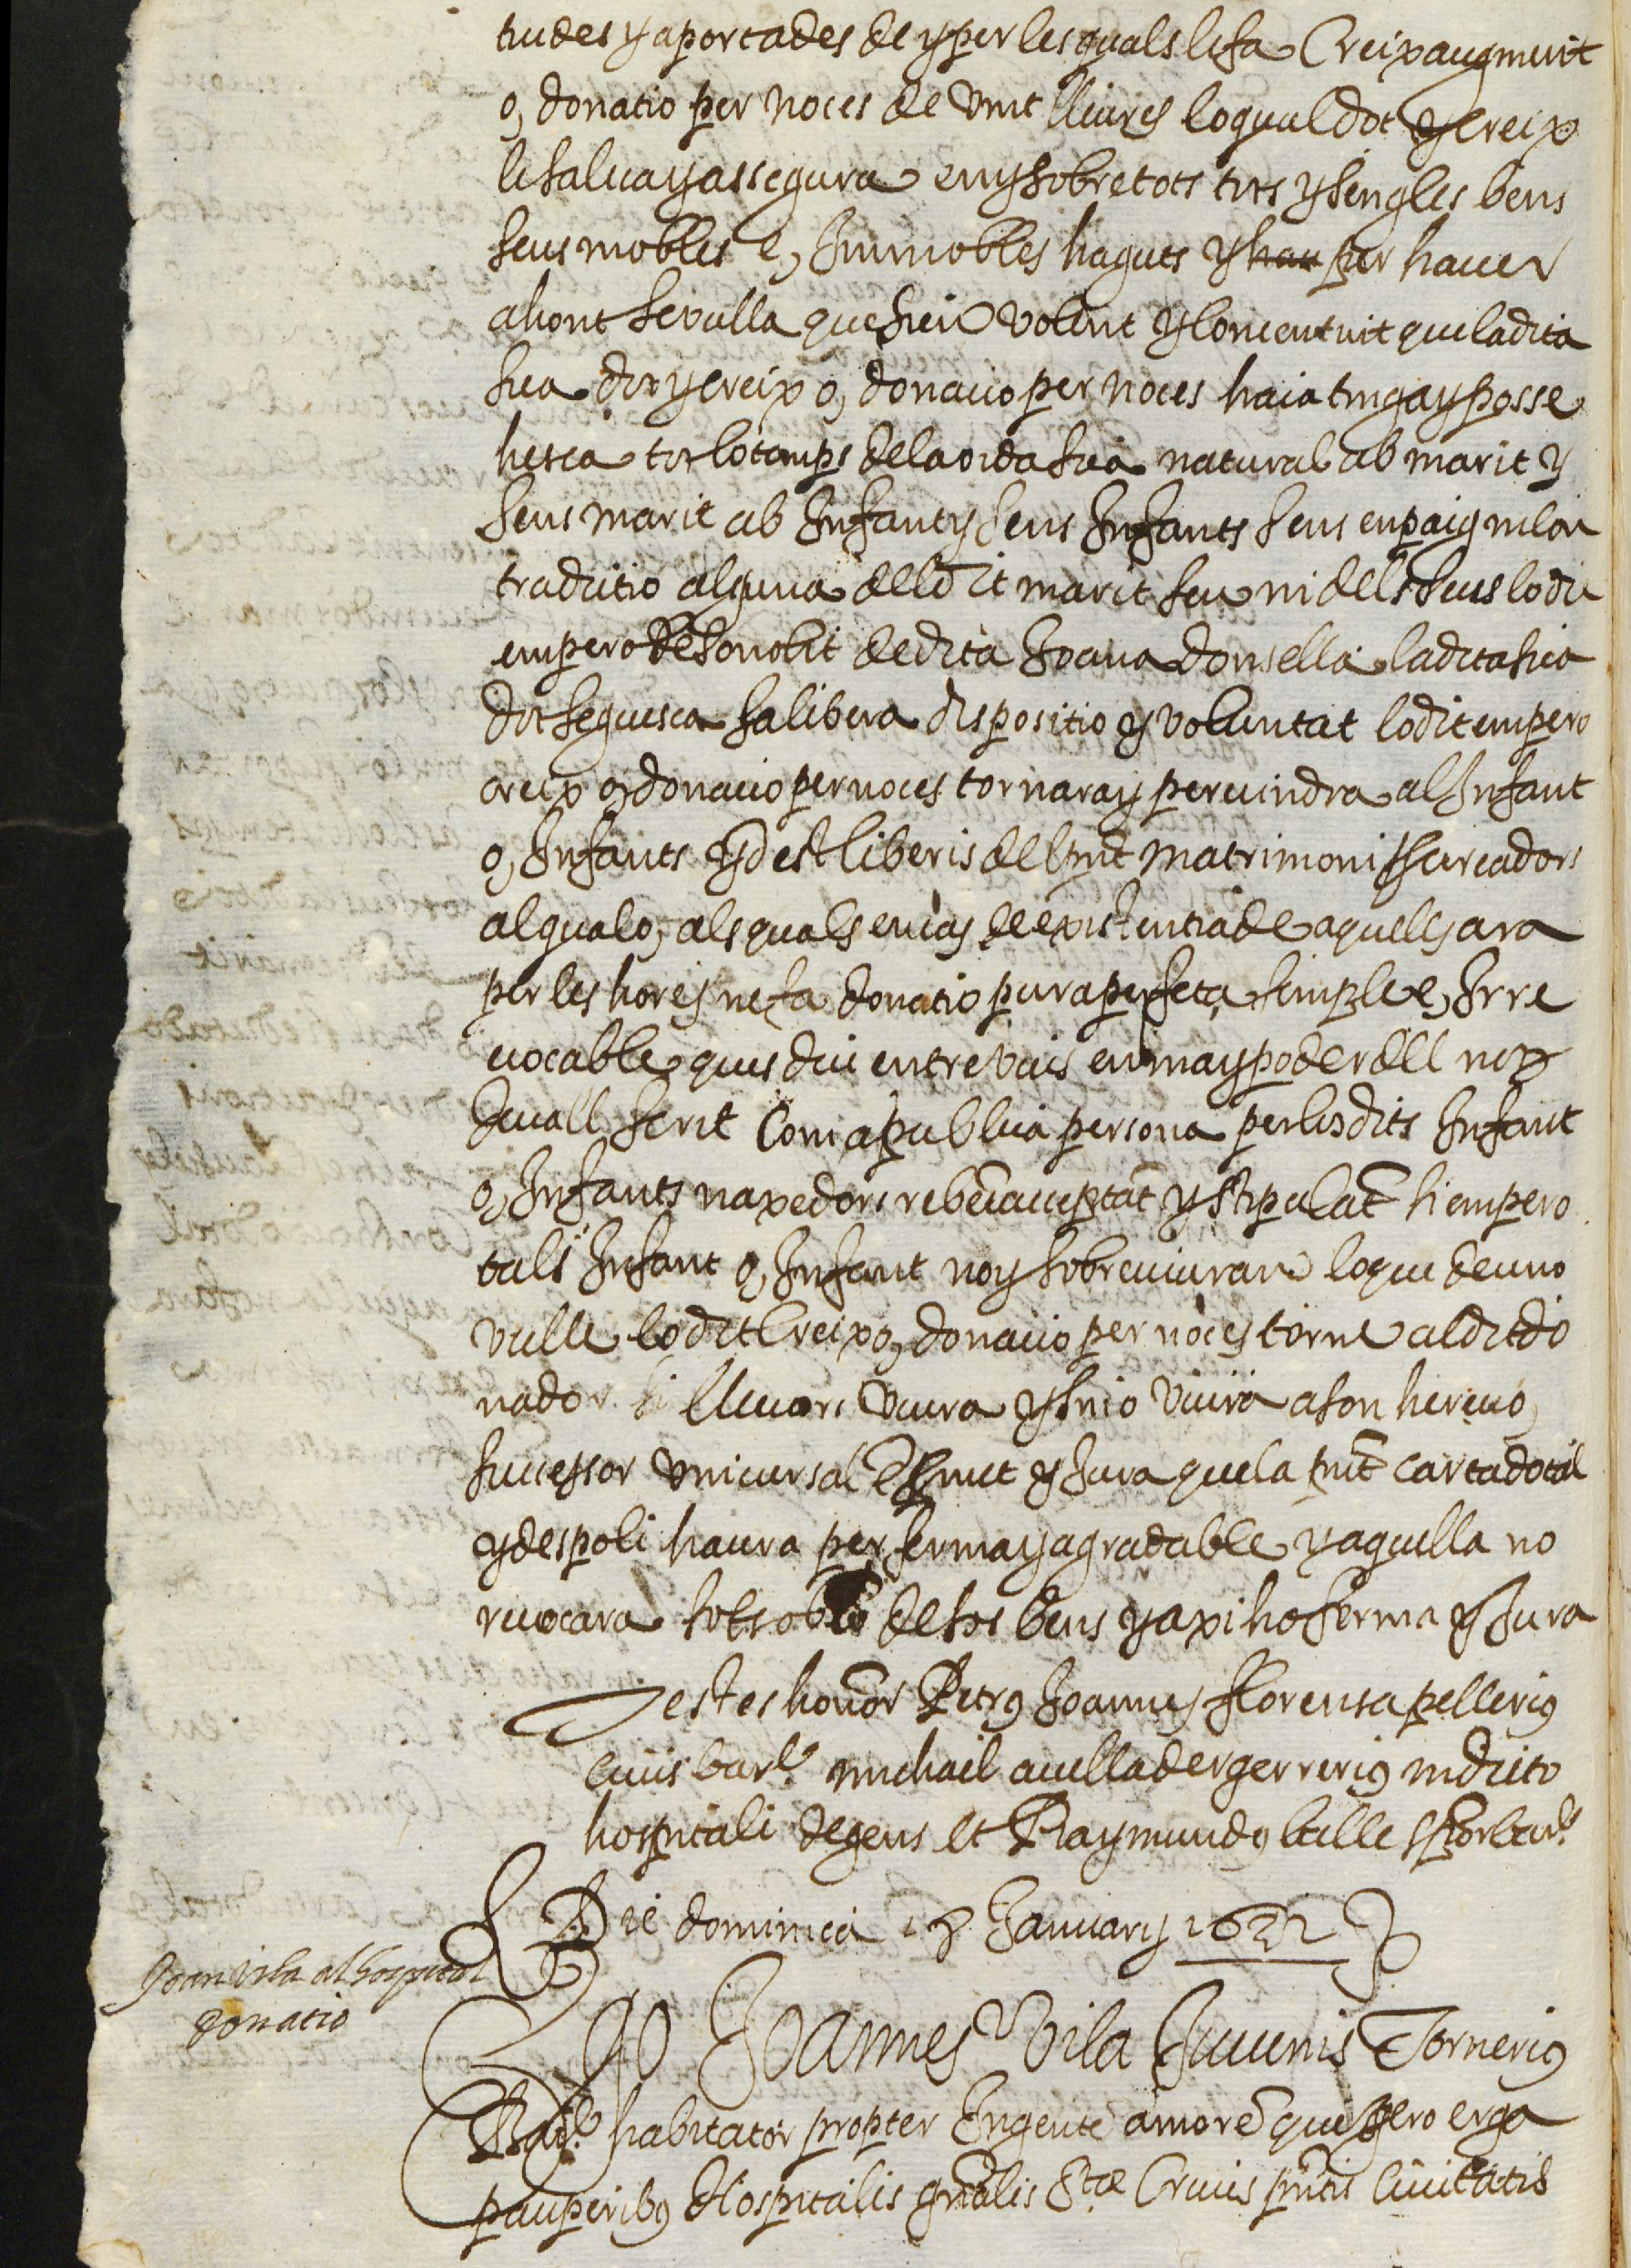 tudes y aportades de y per les quals li fa Creix augment
o, donatio per noces de vint lliures lo qual dot y creix
li salva y assegura en y sobre tots tots y sengles bens
seus mobles e, Immobles haguts y hau per haver
ahont se vulla que sien volent y consentint que la dita
sua dot y creix o, donacio per noces haia tinga y posse
hesca tot lo temps de la vida sua natural ab marit y
sens marit ab Infant y sens Infants sens enpaig ni con
tradictio alguna del dit marit seu ni dels seus lo dit
empero de son obit de dita Joana donsella la dita sua
dot seguesca sa libera dispositio y voluntat lo dit empero
creix o, donacio per noces tornara y pervindra al Infant
o, Infants ydest liberis del pnt matrimoni procreadors
al qual o, als quals en cas de existentia de aquells ara
per les hores ne fa donatio pura perfeta simple e, Irre
vocable ques diu entre vius en ma y poder del not
devall scrit com a publica persona per los dits Infant
o, Infants naxedors rebent acceptāt y stipulāt si empero
tals Infant o, Infant noy sobreviuran lo que deu no
vulle lo dit Creix o, donacio per noces torne al dit do
nador si llavors viura y si no viura a son hereu o,
successor universal E promet y jura que la pnt carta dotal
y de spoli haura per ferma y agradable y aquella no
revocara sots oblō de sos bens y axi ho ferma y jura
Testes honor Petrus Joannes florensa pellerius
civis barᵉ michael avella dergerrerius in dicto
hospitali degens et Raymundus batlle scriptor barᵉ
Die dominica 17 Januarij 1621
Joan vila al hospital
donatio
Ego Joannes Vila Juvenis Tornerius
Barᵉ habitator propter Ingentē amorē que gero erga
pauperibus Hospitalis gnālis Stæ Crucis pntis Civitatis